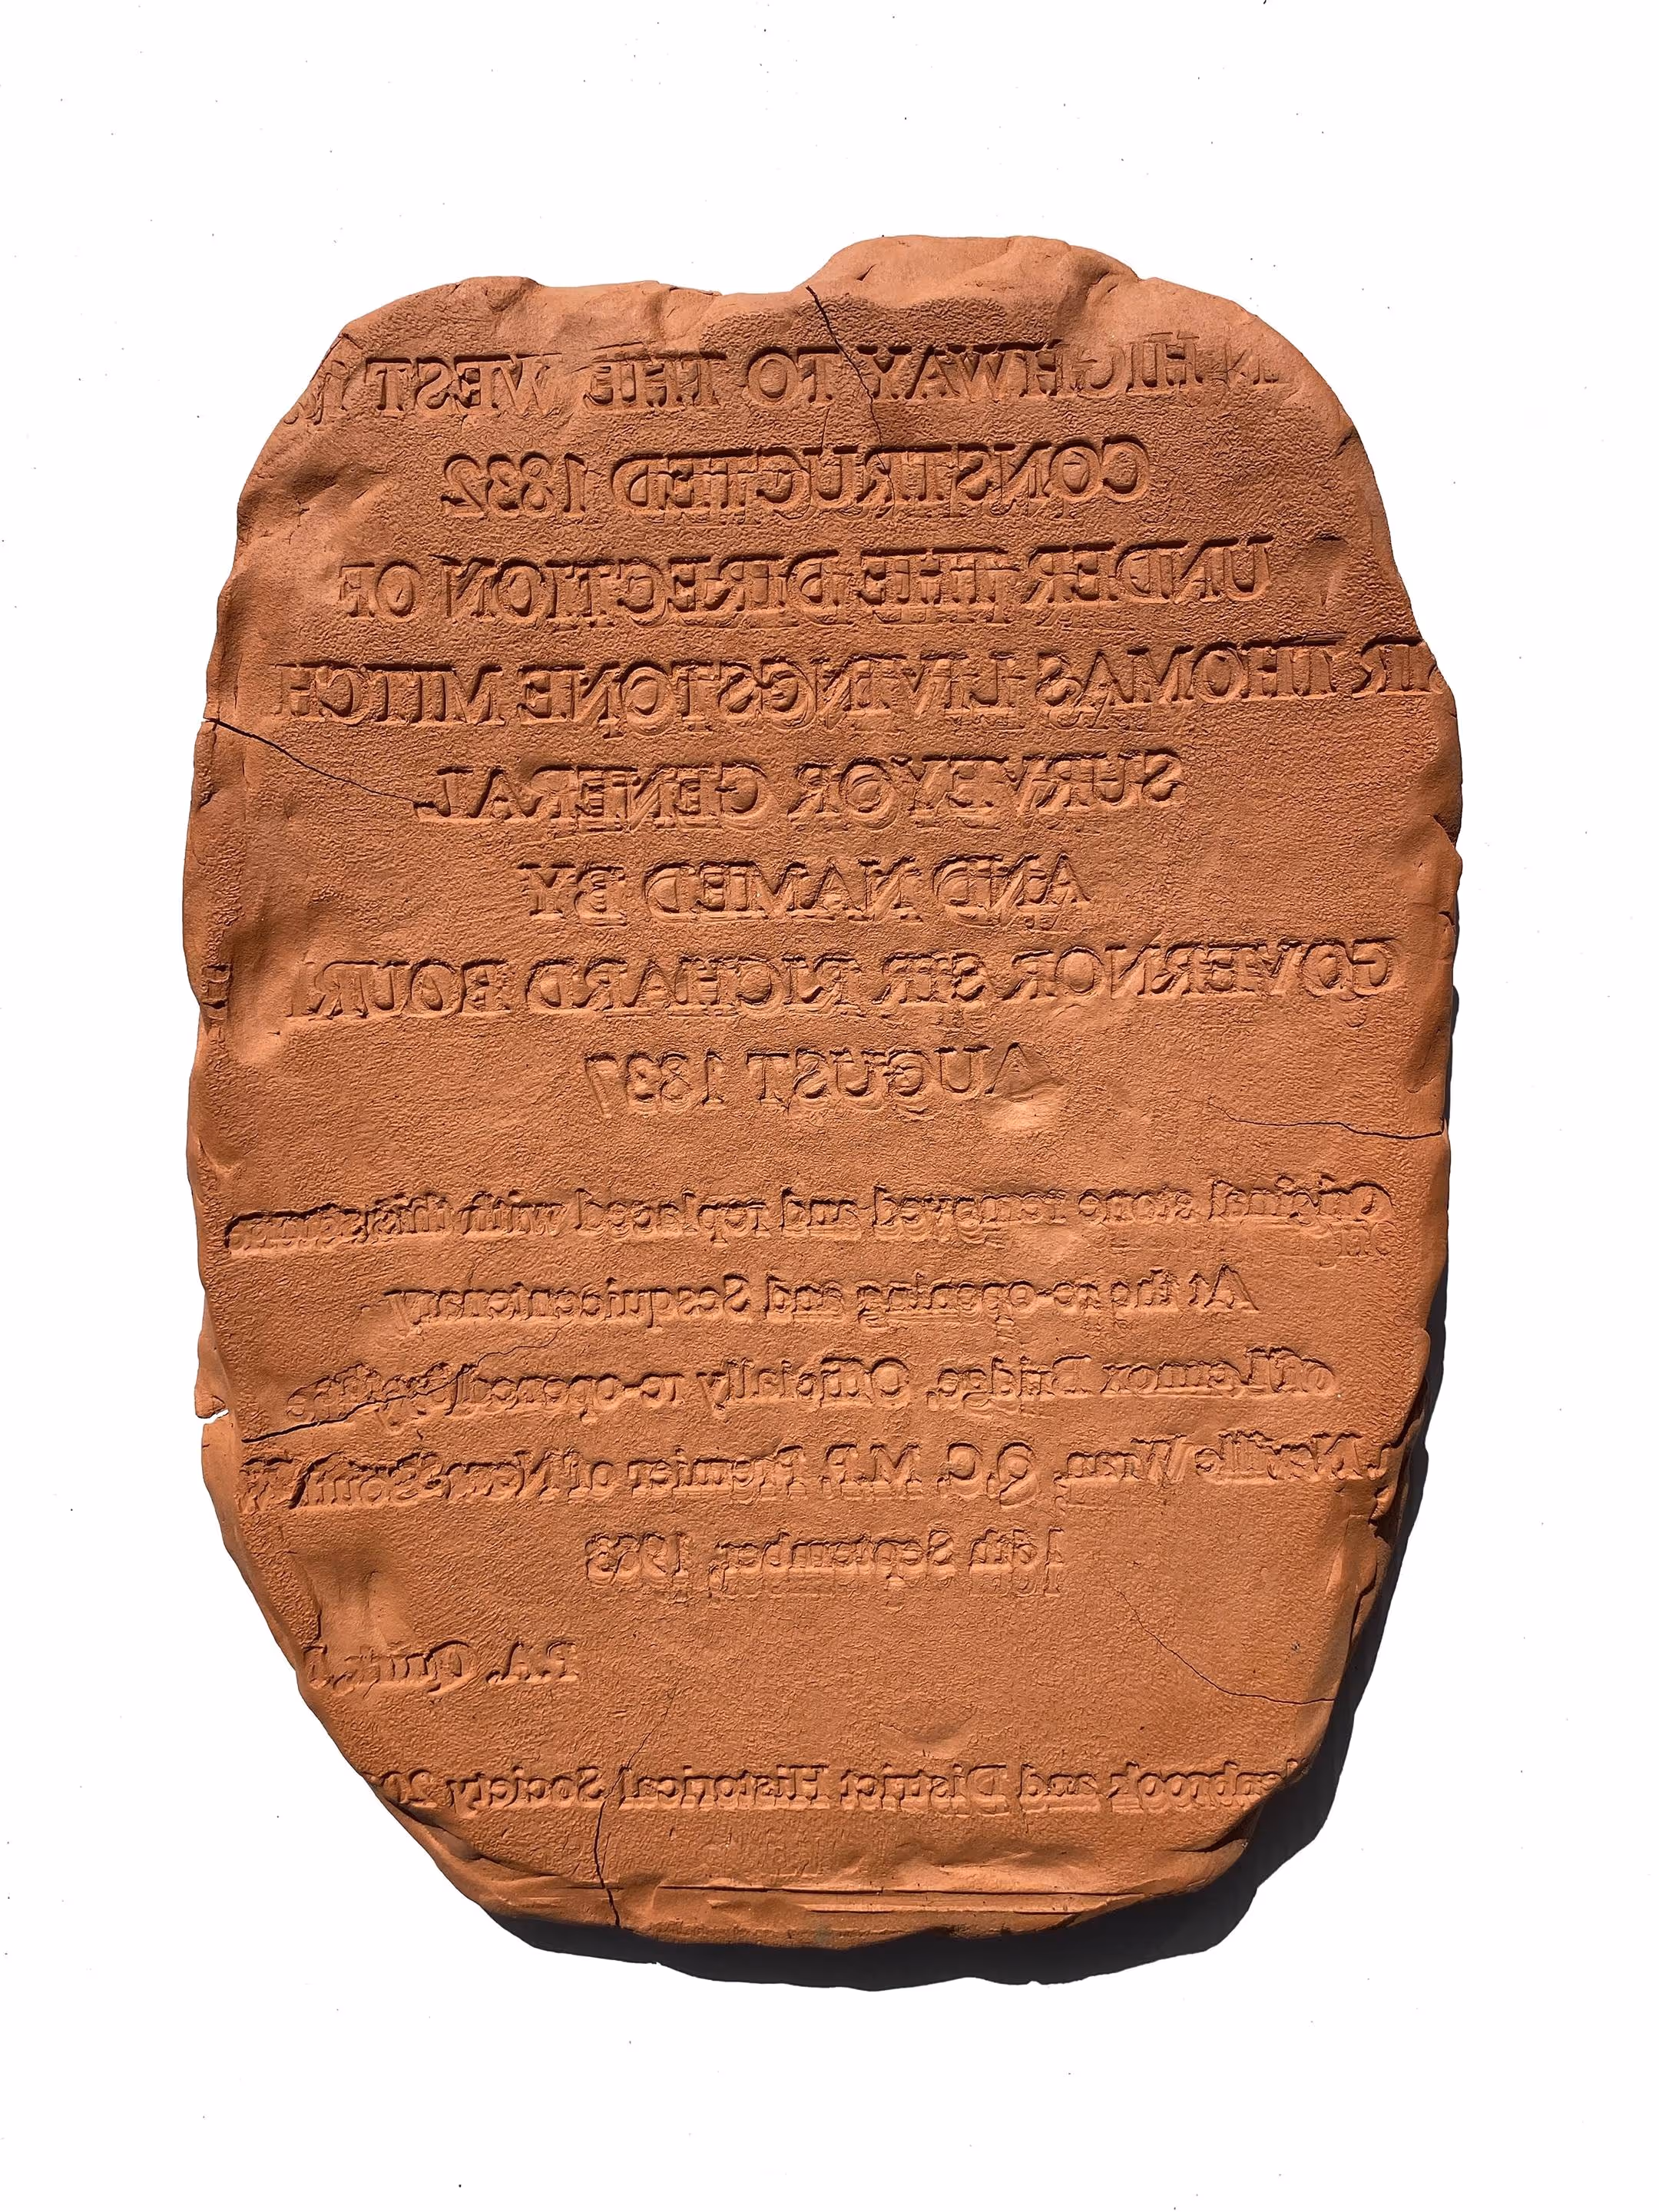 HIGHWAY TO THE WEST
CONSTRUCTED 1832
UNDER THE DIRECTION OF
SIR THOMAS LIVINGSTONE MITCH
SURVEYOR GENERAL
AND NAMED BY
GOVERNOR SIR RICHARD BOUR
AUGUST 1837
Original stone removed and replaced with this
At the re-opening and Sesquicentenary
of Lennox Bridge. Officially re-opened by
Neville Wran, Q.C. M.P. Premier of New South
16th September, 1983
P.A. Quirk
enbrook and District Historical Society 20